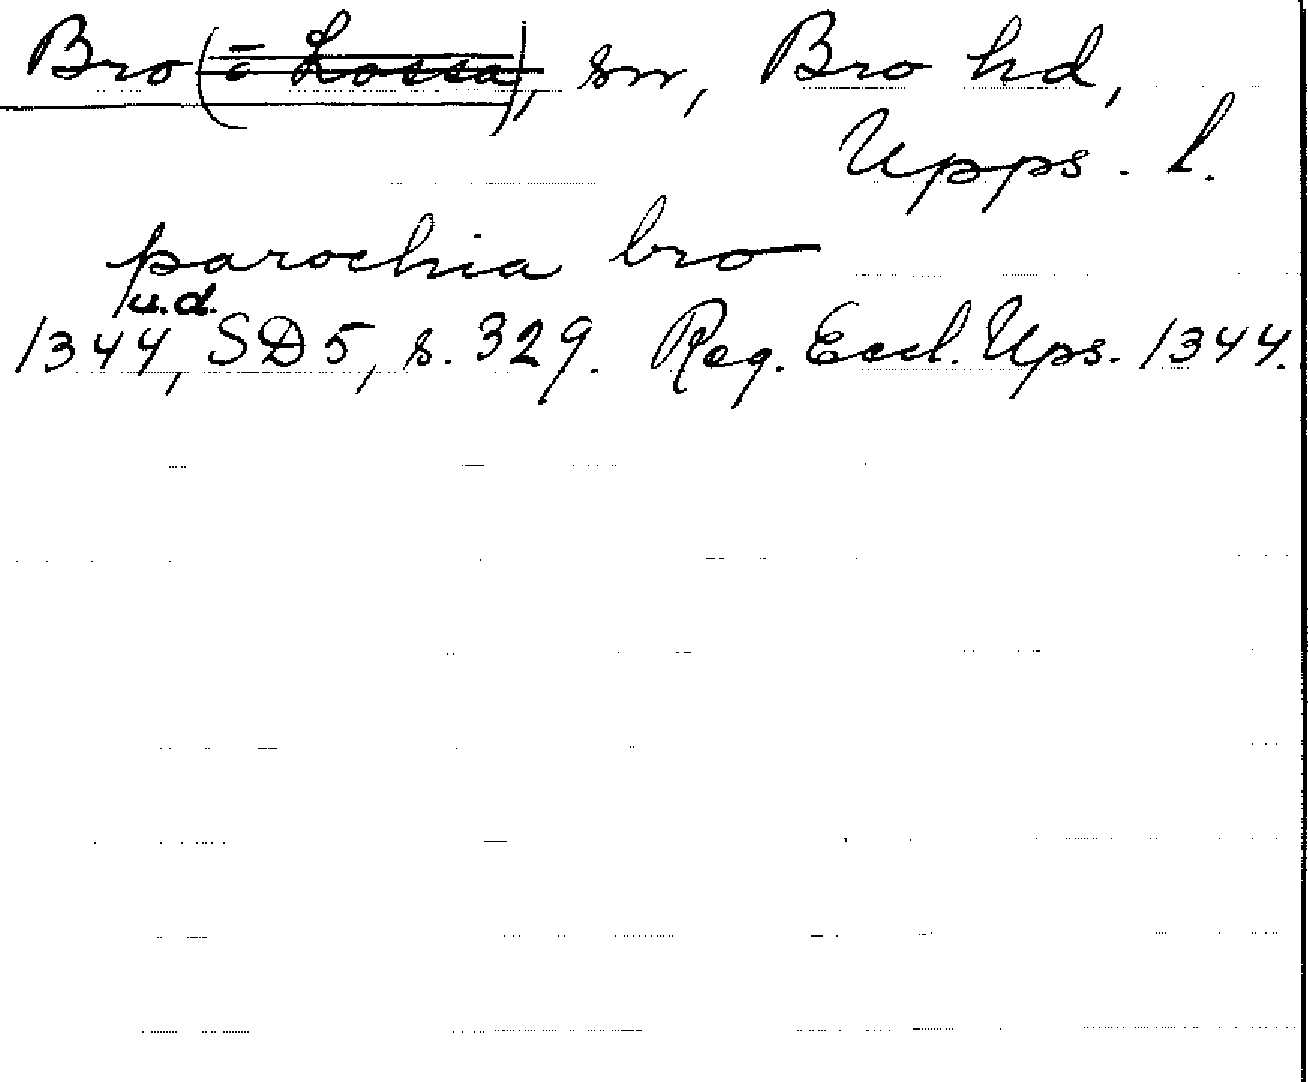 Bro (= Lossa), sn, Bro hd,
Upps. l.
parochia bro
u.d.
1344, SD 5, s. 329. Reg. Eccl. Ups. 1344.